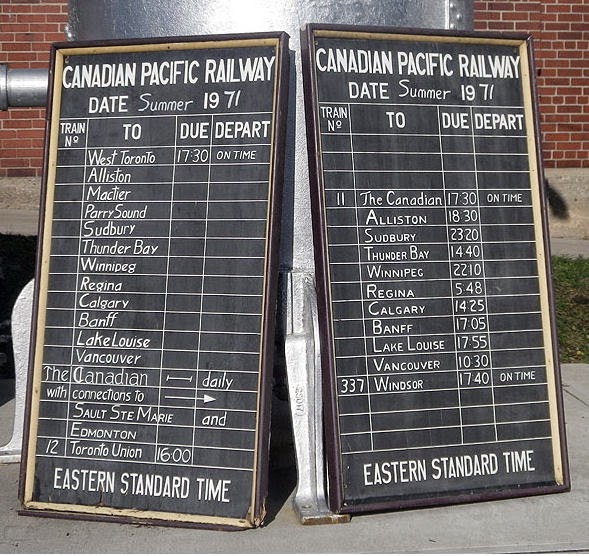 CANADIAN PACIFIC RAILWAY
DATE Summer 1971
TRAIN Nº TO DUE DEPART
West Toronto 17:30 ON TIME
Alliston
Mactier
Parry Sound
Sudbury
Thunder Bay
Winnipeg
Regina
Calgary
Banff
Lake Louise
Vancouver
The Canadian daily
with connections to
SAULT STE MARIE and
EDMONTON
12 Toronto Union 16:00
EASTERN STANDARD TIME
CANADIAN PACIFIC RAILWAY
DATE Summer 1971
TRAIN Nº TO DUE DEPART
11 The Canadian 17:30 ON TIME
ALLISTON 18:30
SUDBURY 23:20
THUNDER BAY 14:40
WINNIPEG 22:10
REGINA 5:48
CALGARY 14:25
BANFF 17:05
LAKE LOUISE 17:55
VANCOUVER 10:30
337 WINDSOR 17:40 ON TIME
EASTERN STANDARD TIME